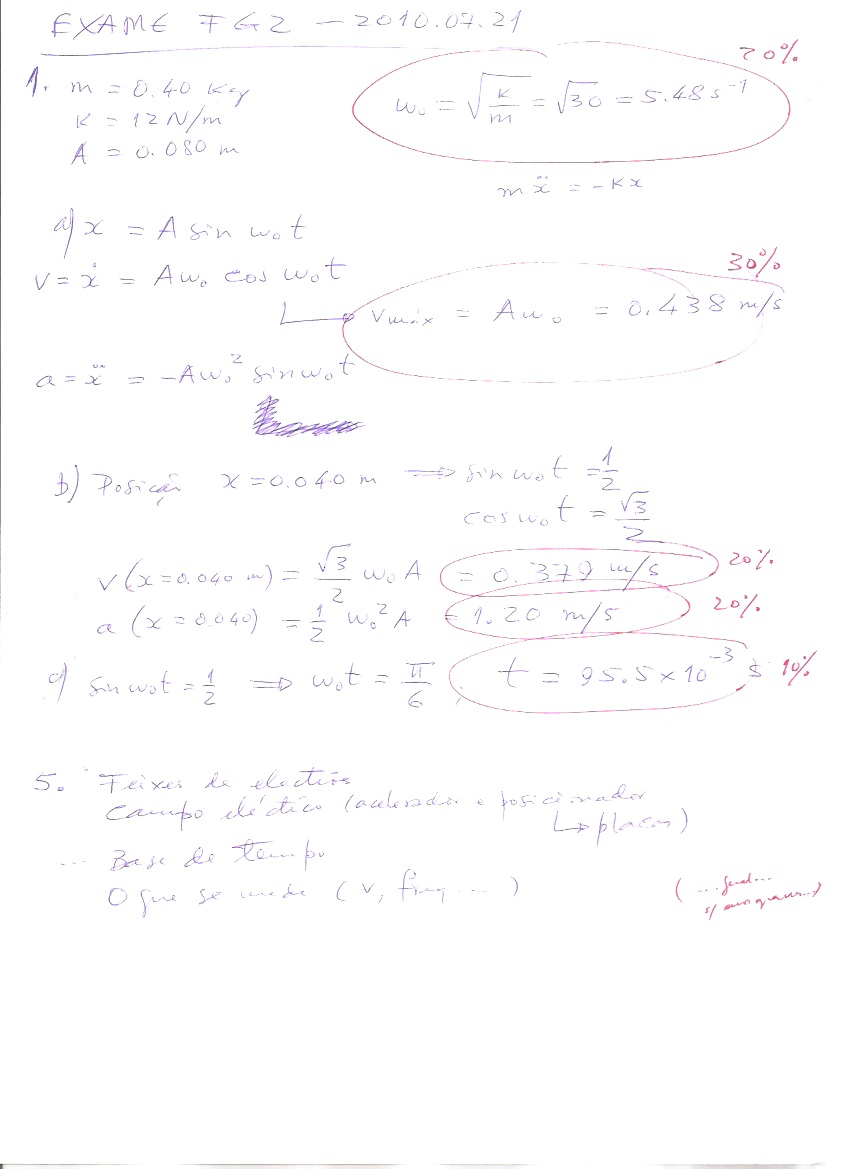 EXAME FG2 — 2010.07.21
20%
1. m = 0.40 Kg
K = 12 N/m
A = 0.080 m
ω₀ = √(K/m) = √30 = 5.48 s⁻¹
m ẍ = -Kx
a) x = A sin ω₀t
v = ẋ = Aω₀ cos ω₀t
30%
↳ vmáx = Aω₀ = 0.438 m/s
a = ẍ = -Aω₀² sin ω₀t
b) Posição x = 0.040 m ⟹ sin ω₀t = 1/2
cos ω₀t = √3/2
v (x = 0.040 m) = √3/2 ω₀ A = 0.379 m/s 20%
a (x = 0.040) = 1/2 ω₀² A = 1.20 m/s 20%
c) sin ω₀t = 1/2 ⟹ ω₀t = π/6, t = 95.5 × 10⁻³ s 10%
5. Feixes de electrões
campo eléctrico (acelerador e posicionador
↳ placas)
... Base de tempo
O que se mede (v, freq ...)
(...
s/